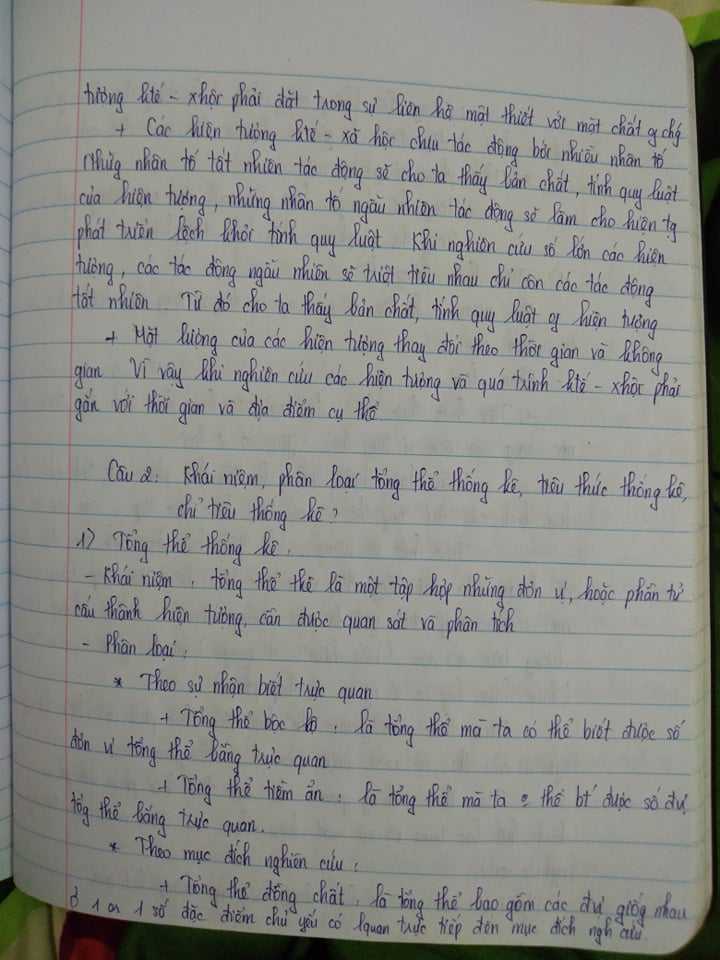 tượng ktế - xhội phải đặt trong sự liên hệ mật thiết với mặt chất of chg
+ Các hiện tượng ktế - xã hội chịu tác động bởi nhiều nhân tố
Những nhân tố tất nhiên tác động sẽ cho ta thấy bản chất, tính quy luật
của hiện tượng, những nhân tố ngẫu nhiên tác động sẽ làm cho hiện tg
phát triển lệch khỏi tính quy luật Khi nghiên cứu số lớn các hiện
tượng, các tác động ngẫu nhiên sẽ triệt tiêu nhau chỉ còn các tác động
tất nhiên Từ đó cho ta thấy bản chất, tính quy luật of hiện tượng
+ Mặt lượng của các hiện tượng thay đổi theo thời gian và không
gian Vì vậy khi nghiên cứu các hiện tượng và quá trình ktế - xhội phải
gắn với thời gian và địa điểm cụ thể
Câu 2: Khái niệm, phân loại tổng thể thống kê, tiêu thức thống kê,
chỉ tiêu thống kê?
1) Tổng thể thống kê.
- Khái niệm: tổng thể tkê là một tập hợp những đơn vị, hoặc phần tử
cấu thành hiện tượng, cần được quan sát và phân tích
- Phân loại:
* Theo sự nhận biết trực quan
+ Tổng thể bộc lộ: là tổng thể mà ta có thể biết được số
đơn vị tổng thể bằng trực quan
+ Tổng thể tiềm ẩn: là tổng thể mà ta thể bt́ được số đvị
tổg thể bằng trực quan.
* Theo mục đích nghiên cứu:
+ Tổng thể đồng chất: là tổng thể bao gồm các đvị giống nhau
ở 1 or 1 số đặc điểm chủ yếu có lquan trực tiếp đến mục đích ngh cứu.